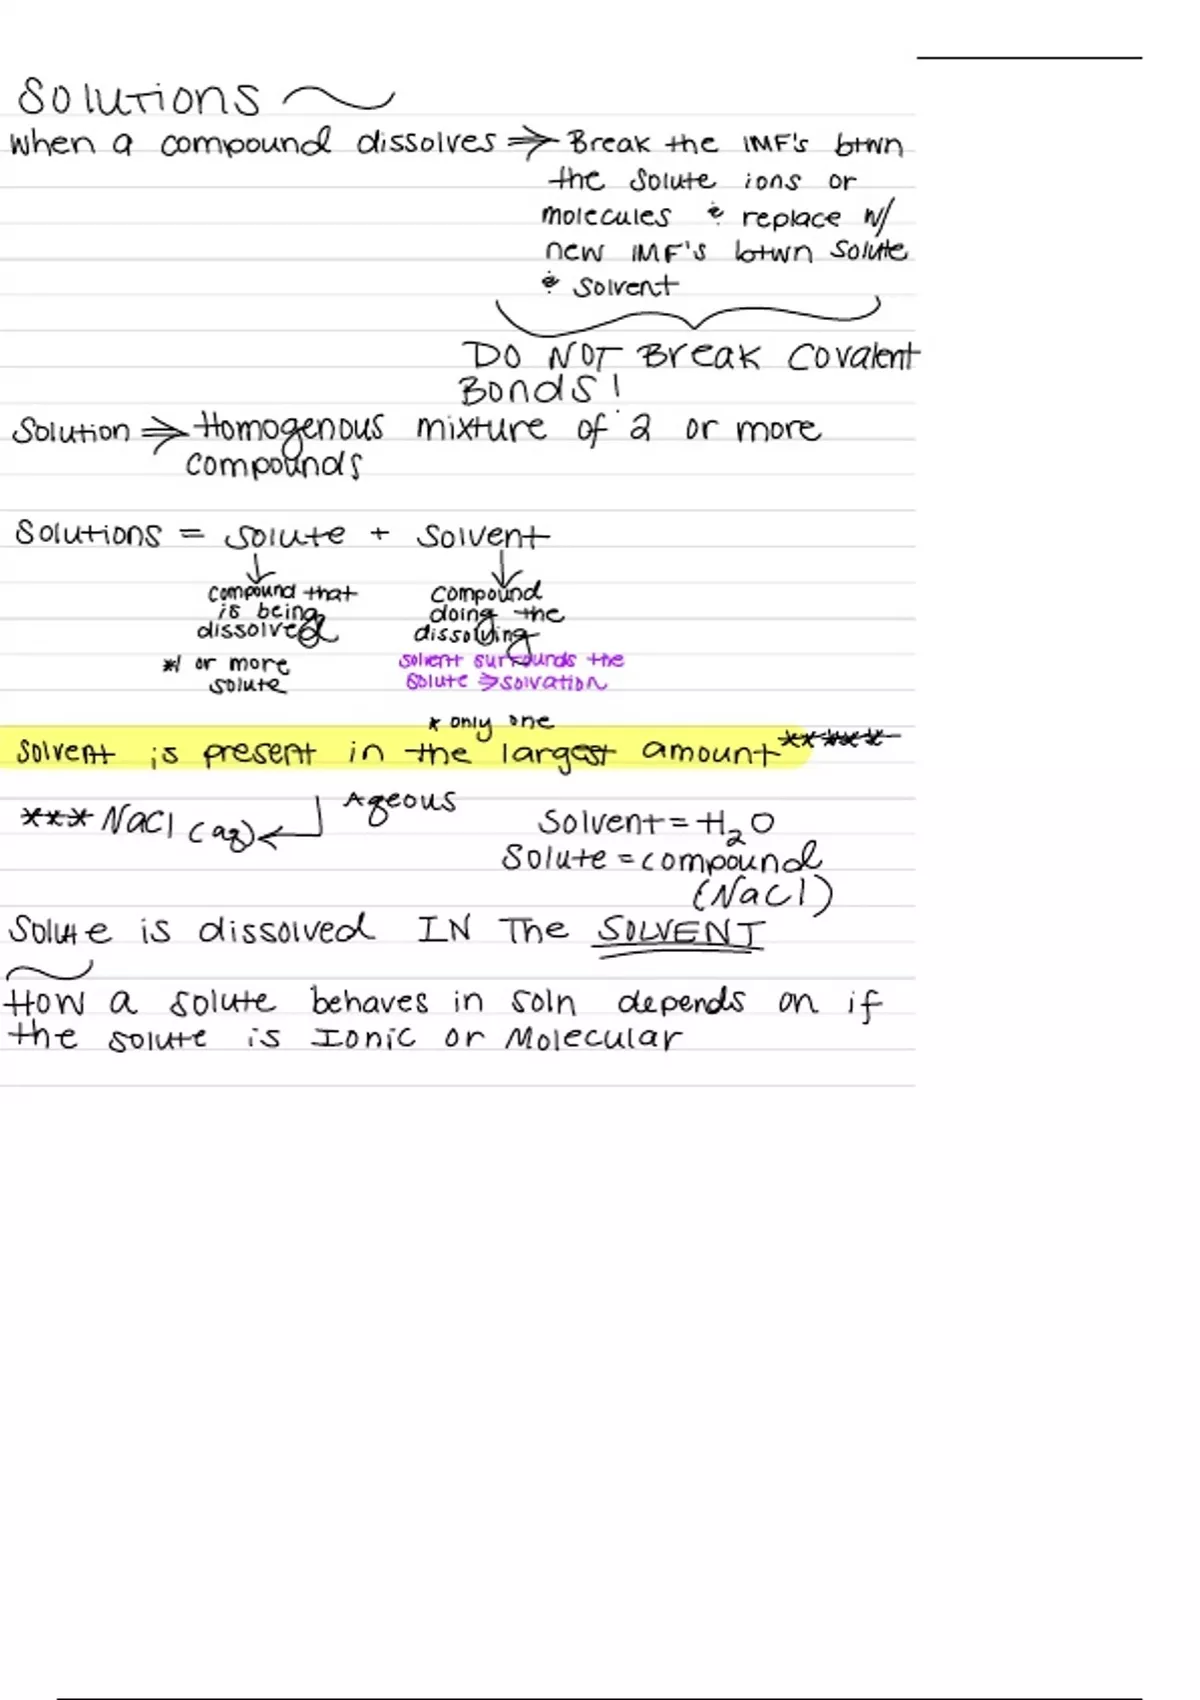 Solutions
When a compound dissolves ⇒ Break the IMF's btwn
the solute ions or
molecules & replace w/
new IMF's btwn solute
& solvent
DO NOT Break Covalent
Bonds!
Solution ⇒ Homogenous mixture of 2 or more
compounds
Solutions = solute + solvent
↓ ↓
compound that
is being
dissolved
*1 or more
solute
compound
doing the
dissolving
solvent surrounds the
solute ⇒ solvation
* only one
Solvent is present in the largest amount*****
Aqeous
***NaCl (aq)
Solvent = H₂O
Solute = compound
(NaCl)
Solute is dissolved IN The SOLVENT
How a solute behaves in soln depends on if
the solute is Ionic or Molecular